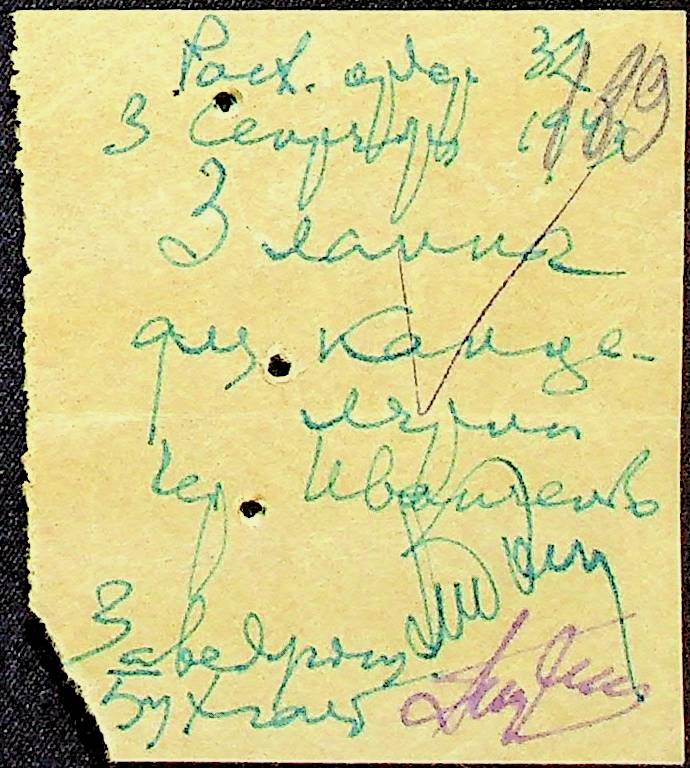 Расх. ордер 32
189
3 Сентября 194
3 лампа
для канце-
лярии
Чер. Иваненко
Заведующ
Бухгалт